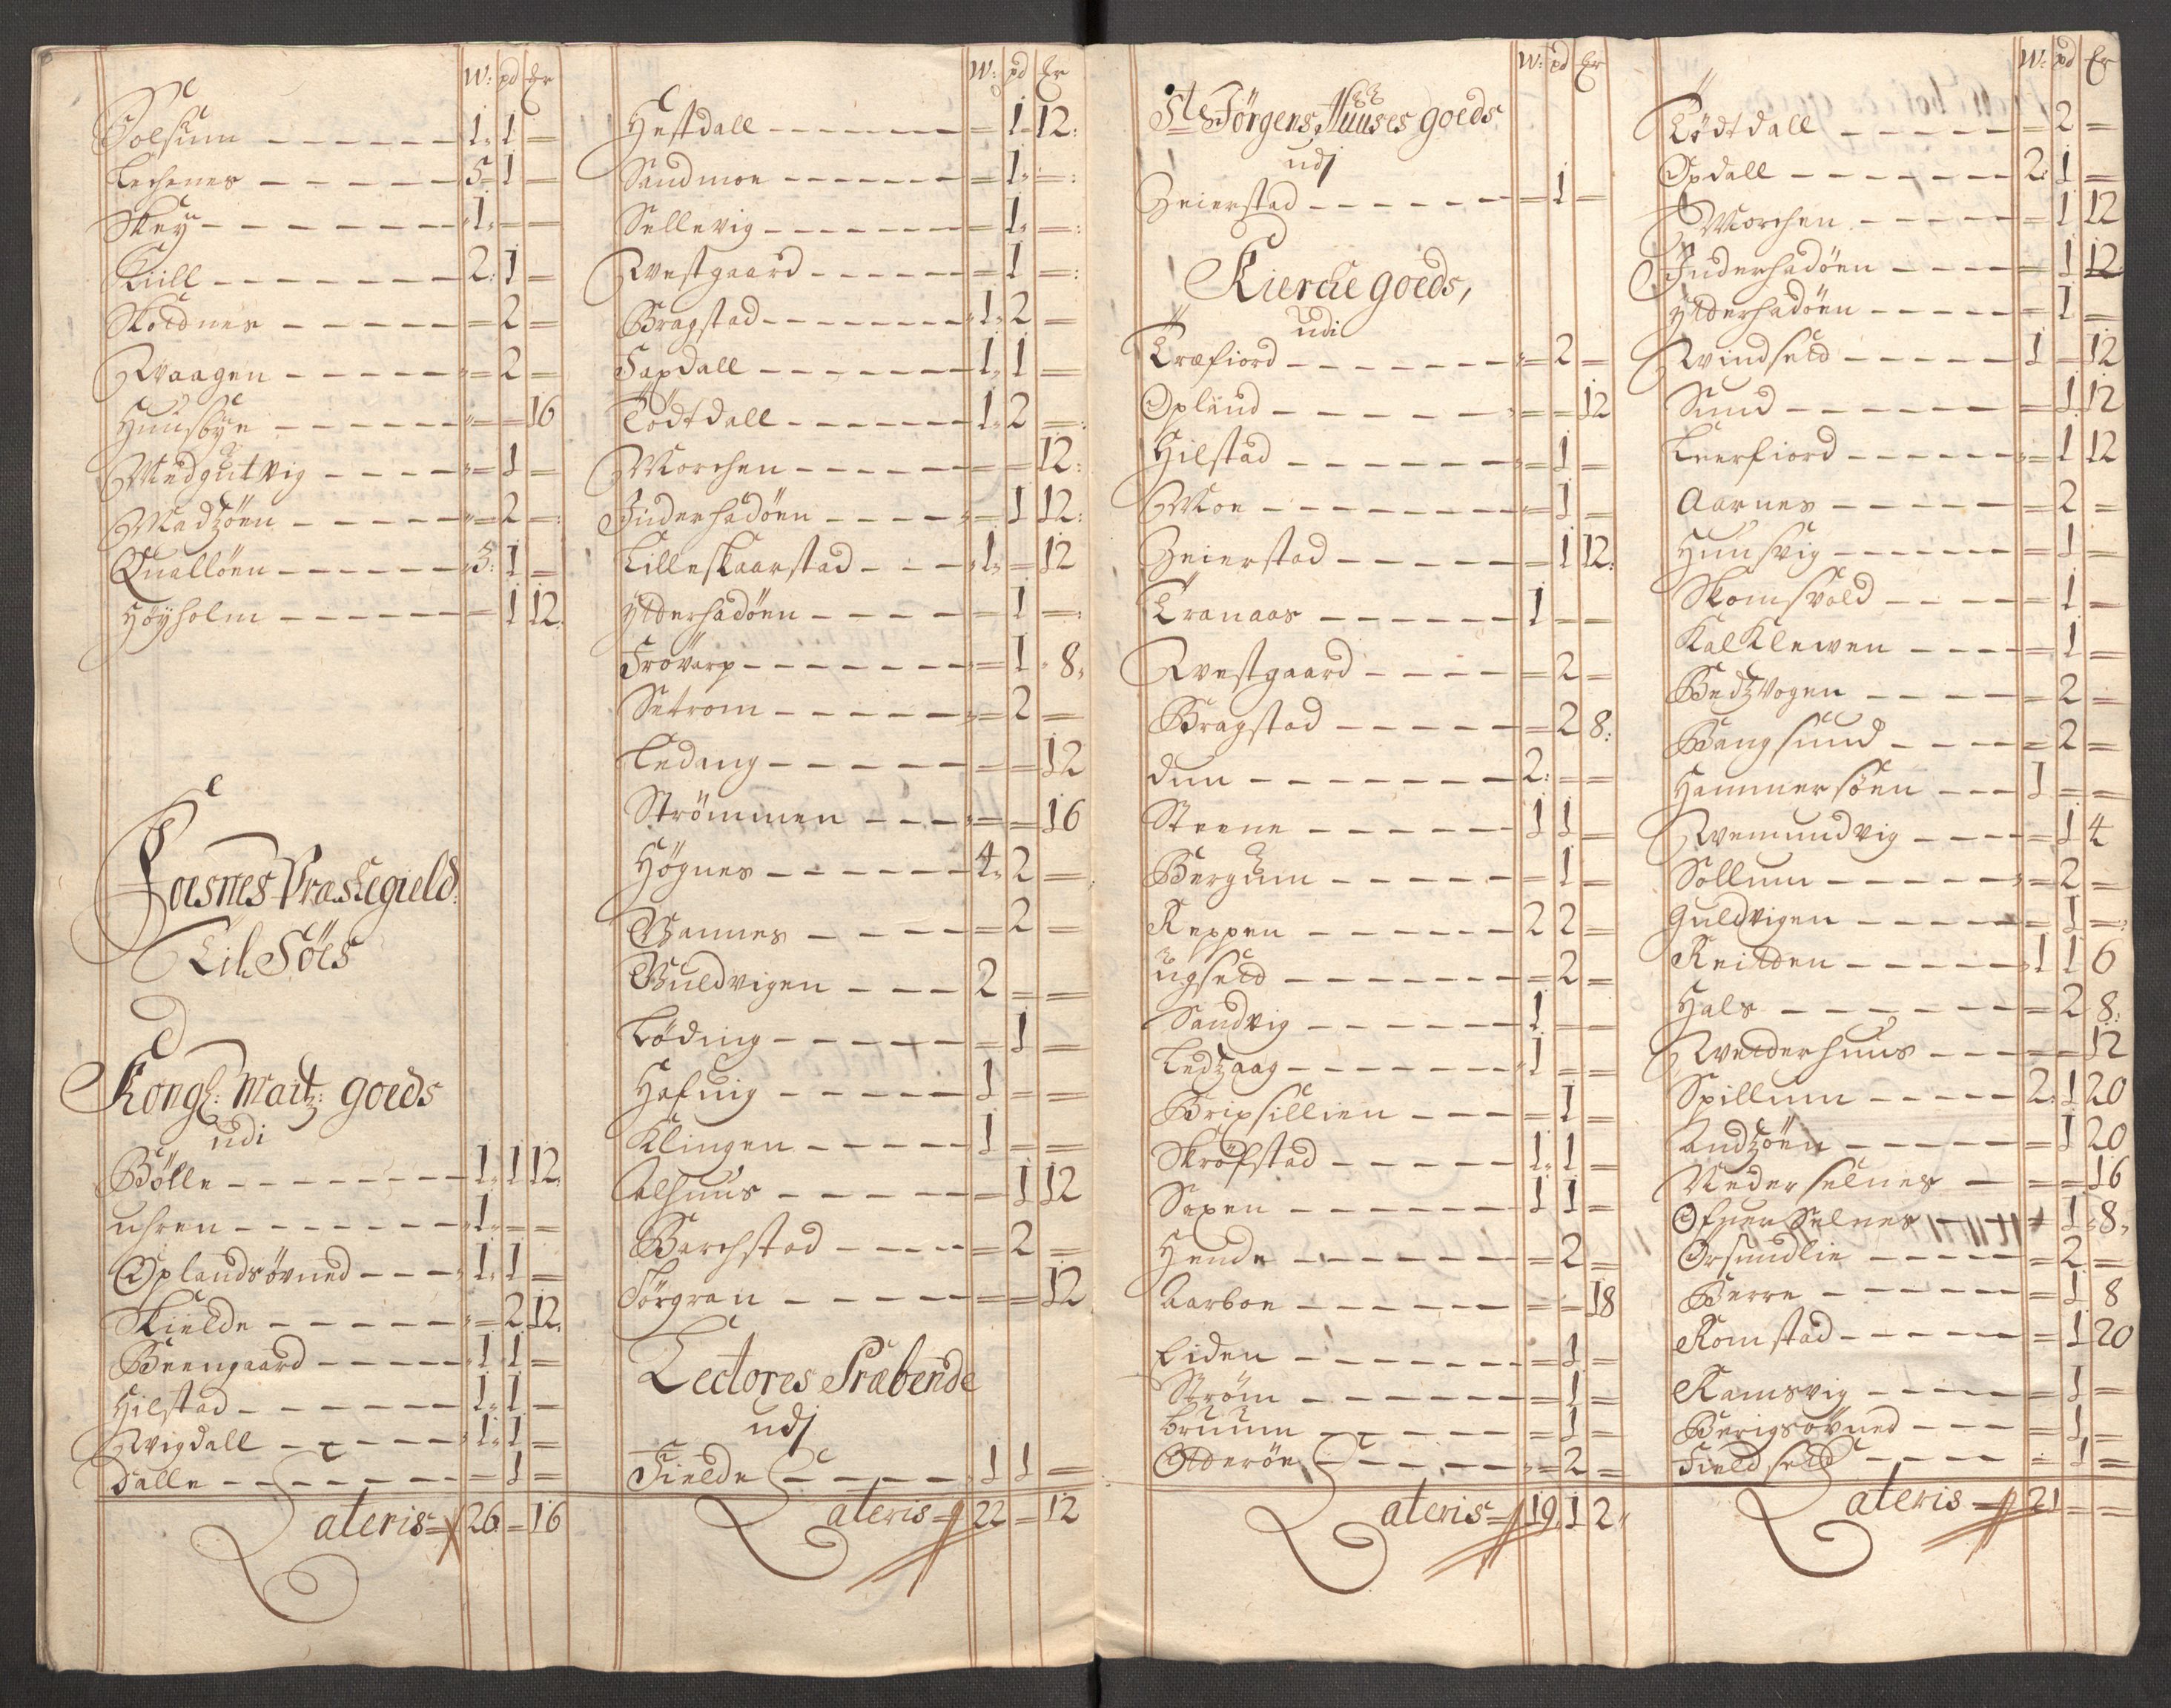 W: pd Er
Solsum 1 1 =
Lechenes 5 1 =
Skey 1 = =
Kiill 2 1 =
Skotdnes = 2 =
Waagen = 2 =
Huusbye = = 16
Medgutvig = 1 =
Madzöen = 2 =
Qvallöen 5 1 =
Höyholm = 1 12
Foesnes Præstegield
Til Söes
Kongl: Maitz: goeds
udi
Bölle 1 1 12
uhren 1 = =
Oplandsövned 1 1 =
Skielde = 2 12
Beengaard 1 1 =
Hilstad 1 1 =
Wigdall 1 1 =
Dalle = 1 =
Lateris 26 = 16
W: pd Er
Hestdall = 1 12
Sandmoe = 1 =
Sellevig = 1 =
Westgaard = 1 =
Bragstad 1 2 =
Faxdall 1 1 =
Tödtdall 1 2 =
Morchen = = 12
Inderhadöen = 1 12
Lilleskaarstad 1 = 12
Ytterhadöen = 1 =
Frövarp = 1 8
Setrom = 2 =
Ledang = = 12
Strömmen = = 16
Högnes 4 2 =
Bannes = 2 =
Guldvigen 2 = =
Löding = 1 =
Hafuig 1 = =
Klingen 1 = =
Alhuus = 1 12
Barchstad = 2 =
Sörgran = = 12
Lectores Præbende
udj
Fielde 1 1 =
Lateris 22 = 12
W: pd Er
Ste Jörgens Huuses goeds
udj
Zeierstad = 1 =
Kierche goeds,
udi
Træfiord = 2 =
Opland = = 12
Hilstad = 1 =
Moe = 1 =
Zeierstad = 1 12
Tranaas 1 = =
Westgaard = 2 =
Bragstad = 2 8
Dun 2 = =
Steene 1 1 =
Bergum = 1 =
Reppen 2 2 =
ugseld = 2 =
Sandvig 1 = =
Ledzaag 1 = =
Bripsillien = 1 =
Skröfstad 1 1 =
Saxen 1 1 =
Hende = 2 =
Aarboe = = 18
Eiden = 1 =
Ström = 1 =
bruum = 1 =
Otterön = 2 =
Lateris 19 1 2
W: pd Er
Tödtdall = 2 =
Opdall 2 1 =
Morchen = 1 12
Inderhadöen = 1 12
Ytterhadöen = 1 =
Windseld 1 = 12
Sund = 1 12
Leerfiord = 1 12
Aarnes = 2 =
Huusvig = 1 =
Skomsvold = 1 =
Kalklewen = 1 =
Bedzvogen = 2 =
Bangsund = 2 =
Hammersöen 1 = =
Wemundvig = 1 4
Sollum = 2 =
Guldvigen = 1 =
Reitden 1 1 6
Hals = 2 8
Wetterhuus = = 12
Spillum 2 1 20
Andzöen = 1 20
Nederselnes = = 16
Ofuer Selnes = 1 8
Orsundlie = 2 =
Berre = 1 8
Romstad = 1 20
Ramsvig = 1 =
Berigsövned = 1 =
Fieldseld = 1 =
Lateris 21 = =